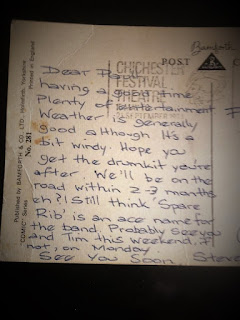 Bamforth
POST
CHICHESTER
FESTIVAL
THEATRE
SEPTEMBER
Printed in England
Published by BAMFORTH & CO., LTD., Holmfirth, Yorkshire
"COMIC" Series
No. 281
Dear
having a good time
Plenty of entertainment
Weather is generally
good although it's a
bit windy. Hope you
get the drumkit you're
after. We'll be on the
road within 2-3 months
eh? I still think 'Spare
Rib' is an ace name for
the band. Probably see you
and Tim this weekend, if
not, on Monday.
See You Soon Steve